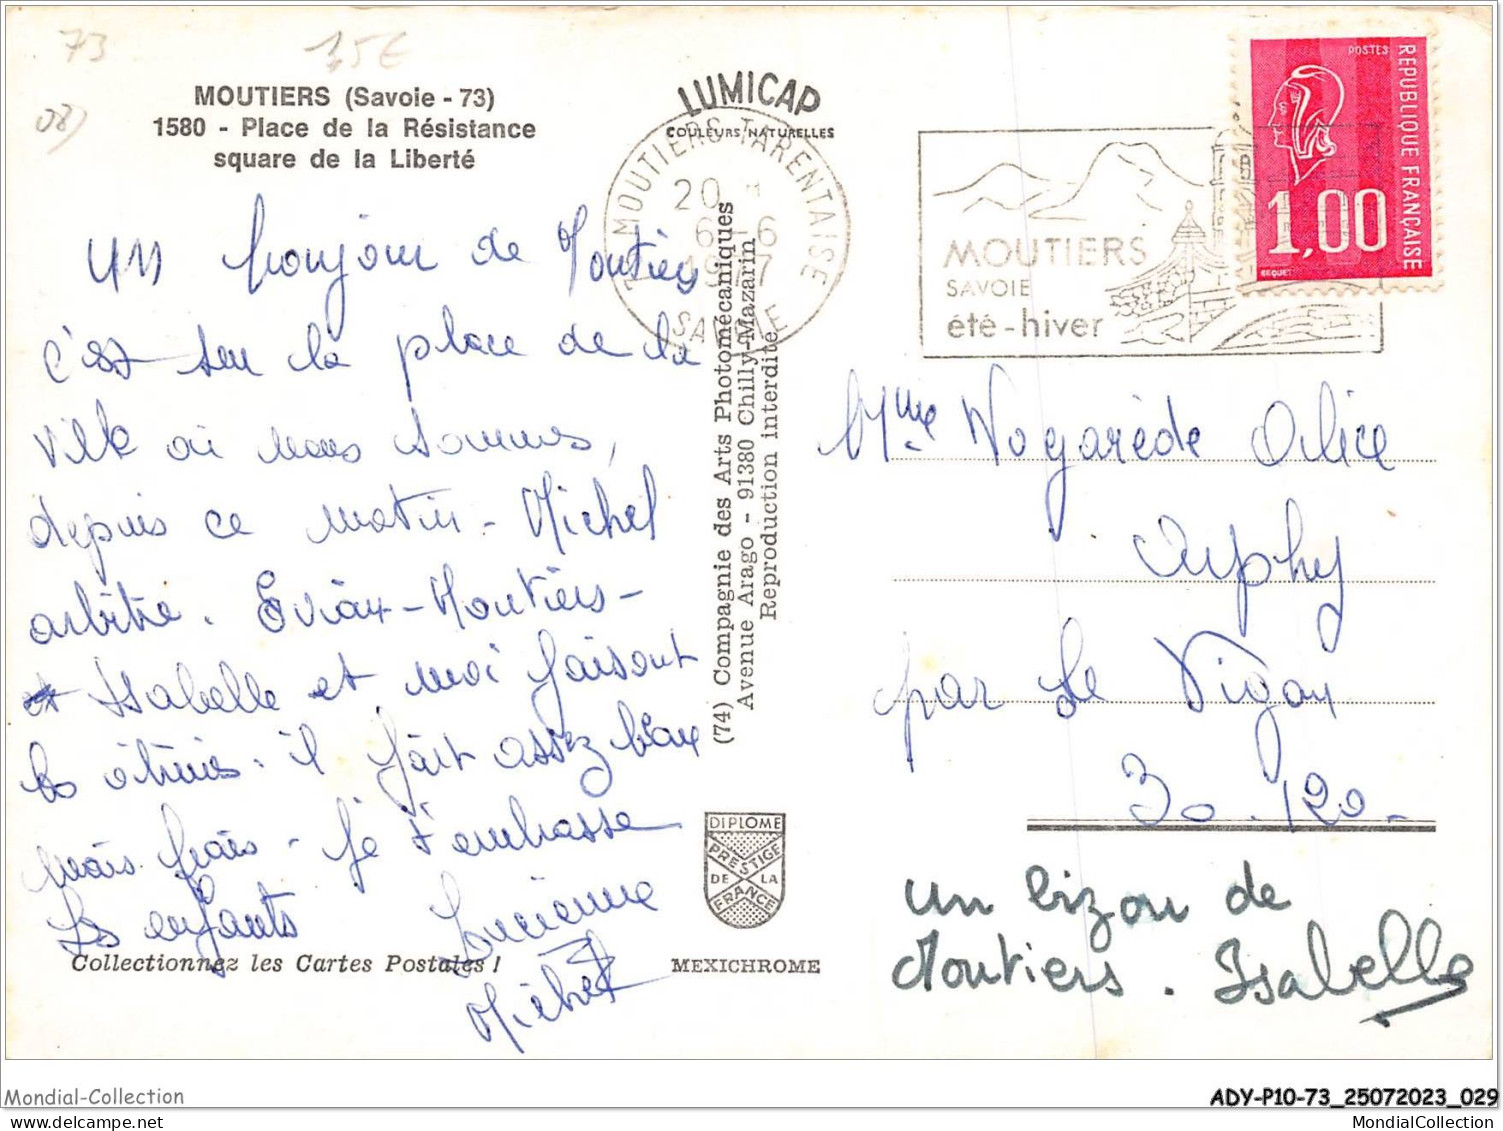 73
15€
08)
MOUTIERS (Savoie - 73)
1580 - Place de la Résistance
square de la Liberté
Un bonjour de Moutiers
c'est sur la place de la
ville où nous sommes,
depuis ce matin - Michel
arbitre. Evian-Moutiers -
Isabelle et moi faisont
les
il fait assez beau
mais frais - Je t'embrasse
Les enfants Lucienne
Michel
Collectionnez les Cartes Postales !
LUMICAP
COULEURS NATURELLES
MOUTIERS-TARENTAISE
20
6-6
1977
SAVOIE
(74) Compagnie des Arts Photomécaniques
Avenue Arago - 91380 Chilly-Mazarin
Reproduction interdite
DIPLOME
PRESTIGE
DE LA
FRANCE
MEXICHROME
MOUTIERS
SAVOIE
été-hiver
POSTES
REPUBLIQUE FRANÇAISE
1,00
BEQUET
Mme Nogarède Alice
Arphy
par Le Vigan
30.120-
un bizou de
Moutiers. Isabelle
Mondial-Collection
ADY-P10-73_25072023_029
www.mondialcollection.net
MondialCollection